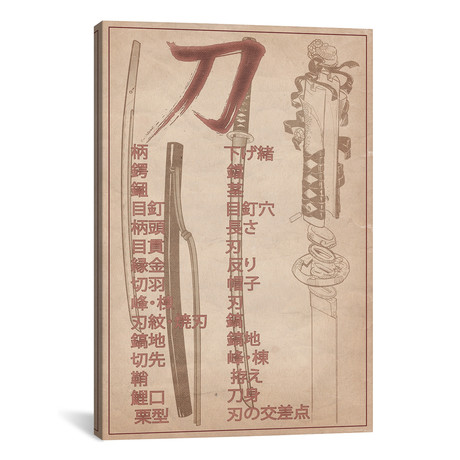 刀
柄
鍔
目釘
柄頭
目貫
縁金
切羽
峰・棟
刃紋・焼刃
鎬地
切先
鞘
鯉口
栗型
下げ緒
鎬
茎
目釘穴
長さ
刃
反り
帽子
刃
鎬
鎬地
峰・棟
拵え
刀身
刃の交差点